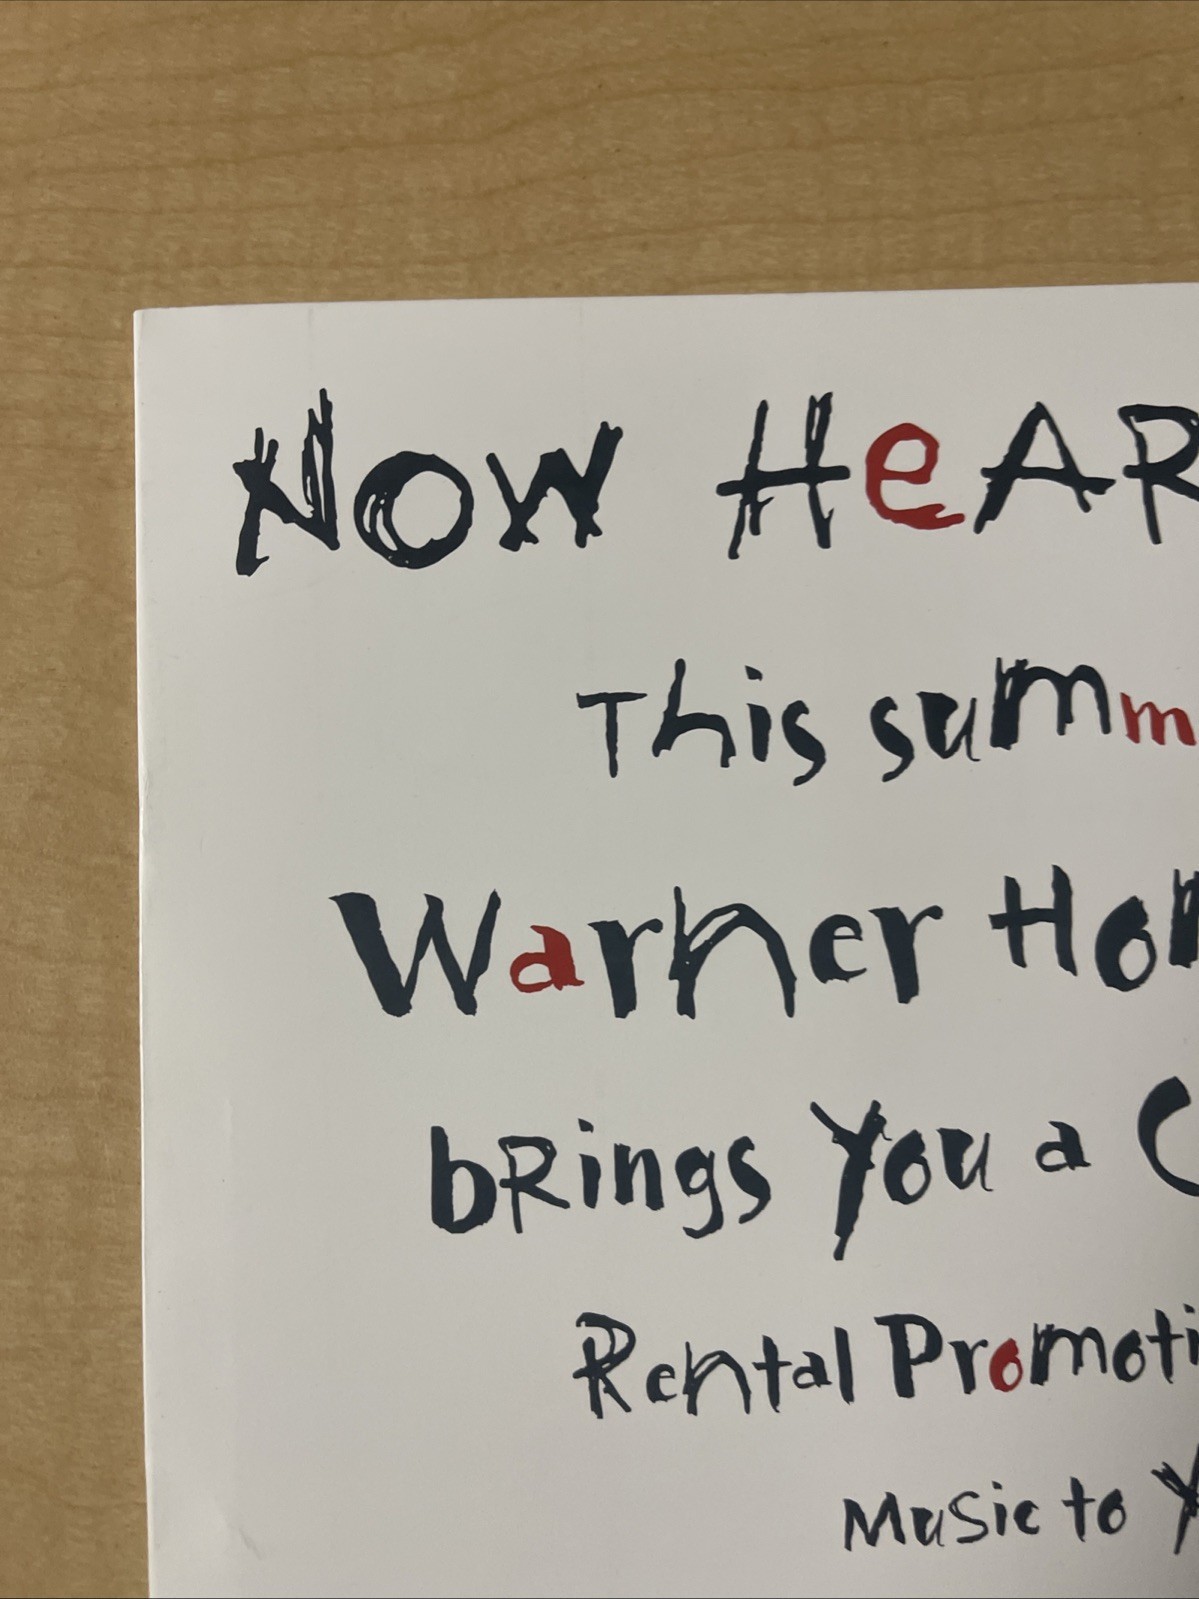 Now HeAR
This summ
Warner Hom
bRings You a C
Rental Promoti
Music to Y